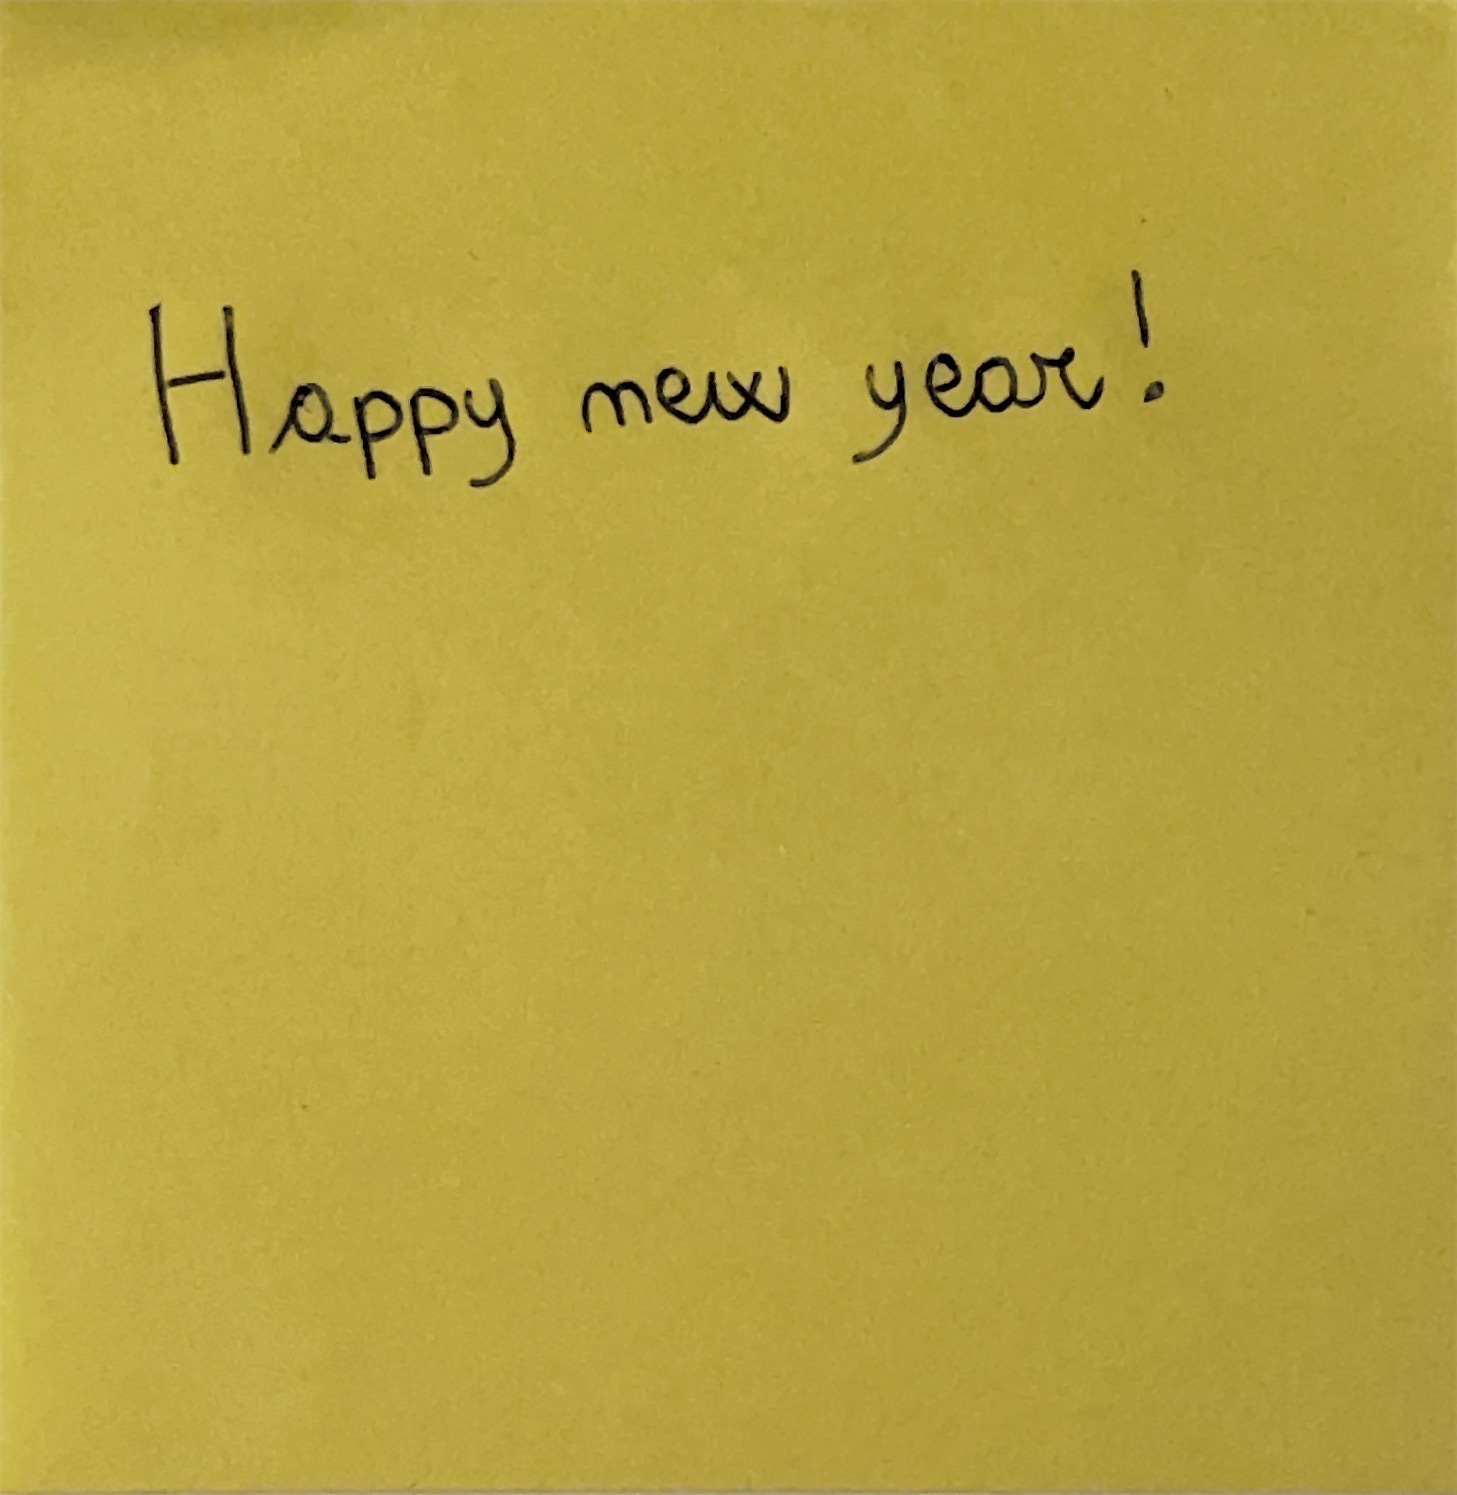 Happy new year!